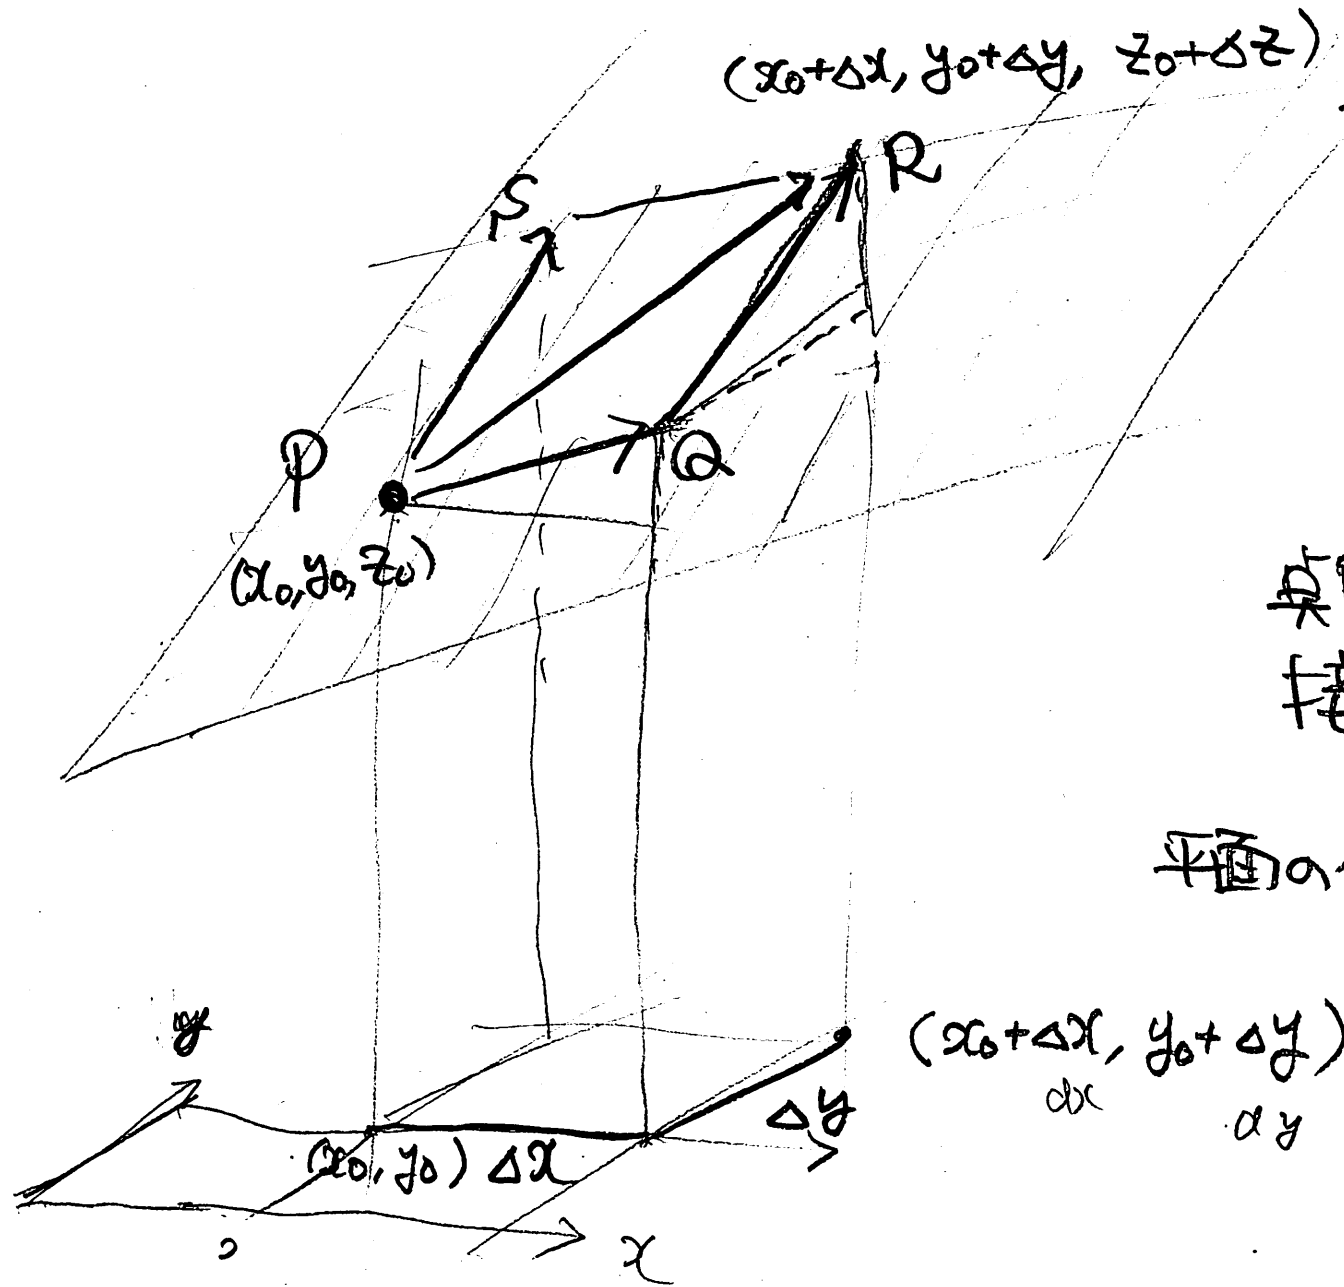 (x₀+Δx, y₀+Δy, z₀+Δz)
R
S
P
Q
(x₀, y₀, z₀)
平面の
y
(x₀+Δx, y₀+Δy)
dx
dy
Δy
(x₀, y₀) Δx
x